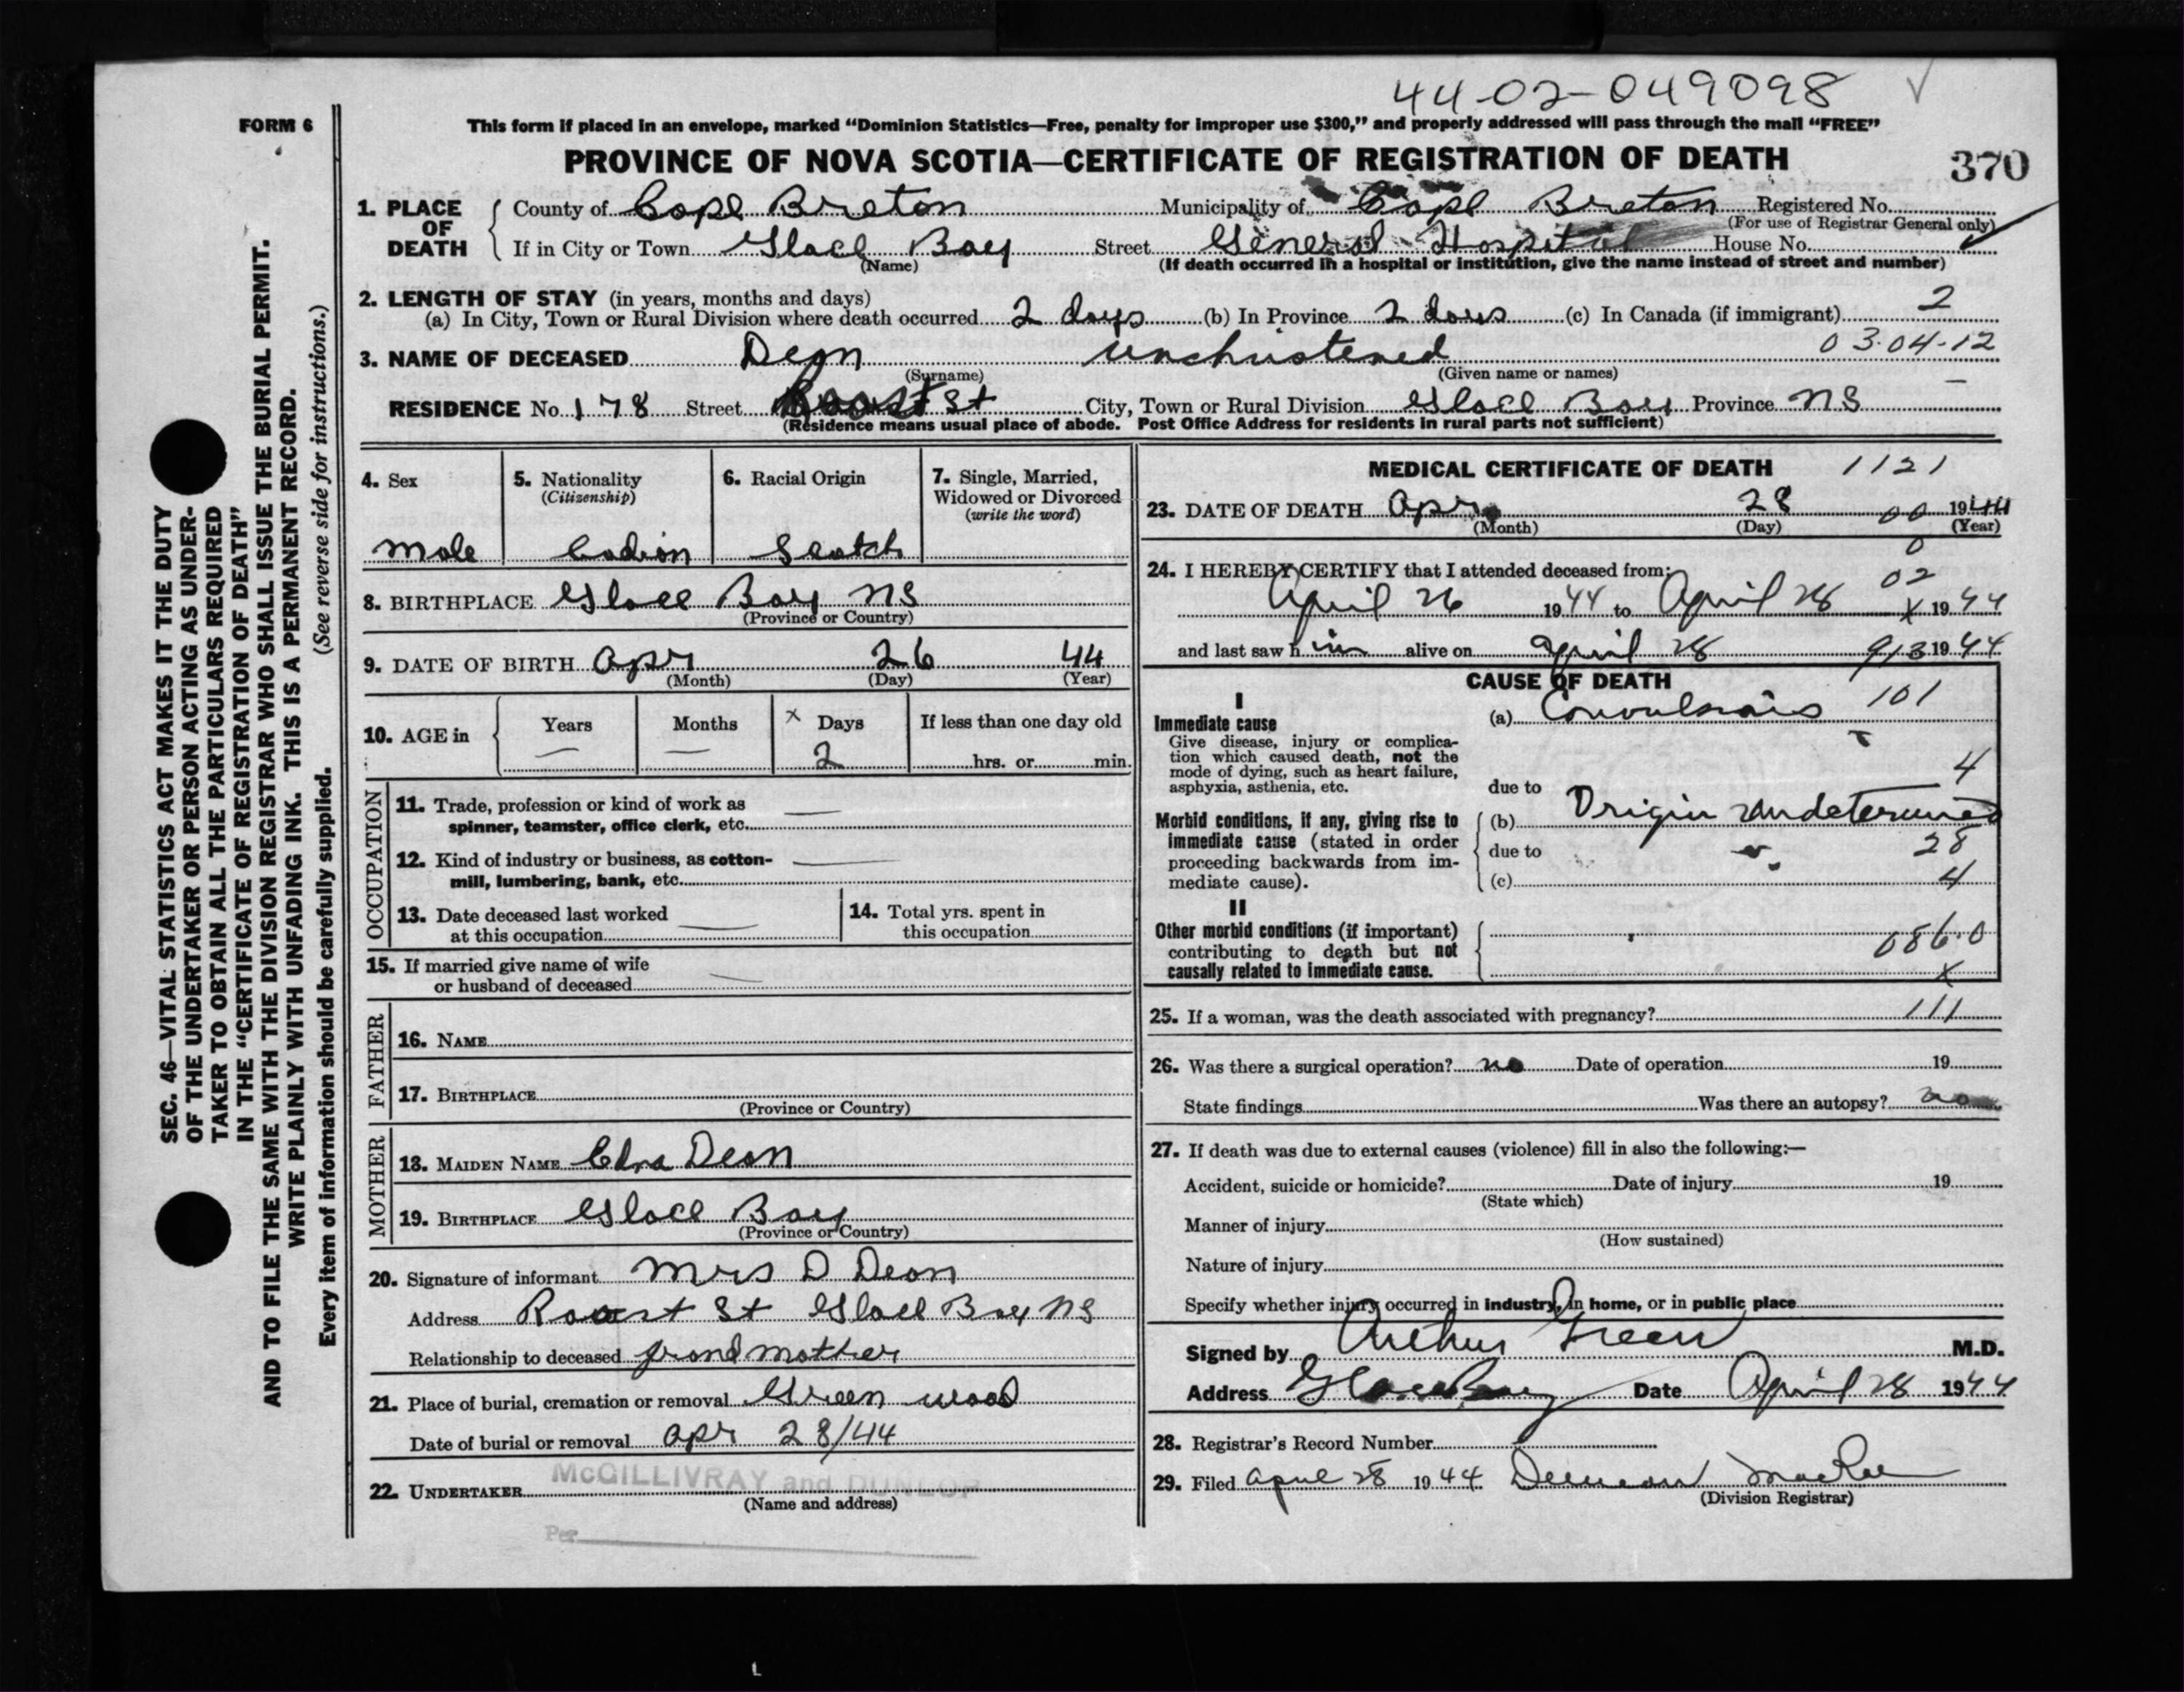 44-02-049098 ✓
FORM 6
This form if placed in an envelope, marked "Dominion Statistics—Free, penalty for improper use $300," and properly addressed will pass through the mail "FREE"
PROVINCE OF NOVA SCOTIA—CERTIFICATE OF REGISTRATION OF DEATH 370
1. PLACE OF DEATH
County of Cape Breton Municipality of Cape Breton Registered No.
(For use of Registrar General only)
If in City or Town Glace Bay Street General Hospital House No.
(Name) (If death occurred in a hospital or institution, give the name instead of street and number)
2. LENGTH OF STAY (in years, months and days)
(a) In City, Town or Rural Division where death occurred 2 days (b) In Province 2 days (c) In Canada (if immigrant) 2
3. NAME OF DECEASED Dean unchristened 03-04-12
(Surname) (Given name or names)
RESIDENCE No. 178 Street St City, Town or Rural Division Glace Bay Province NS
(Residence means usual place of abode. Post Office Address for residents in rural parts not sufficient)
4. Sex
male
5. Nationality
(Citizenship)
Cadian
6. Racial Origin
Scotch
7. Single, Married,
Widowed or Divorced
(write the word)
8. BIRTHPLACE Glace Bay NS
(Province or Country)
9. DATE OF BIRTH Apr 26 44
(Month) (Day) (Year)
10. AGE in Years Months x Days If less than one day old
— — 2 hrs. or min.
OCCUPATION
11. Trade, profession or kind of work as —
spinner, teamster, office clerk, etc.
12. Kind of industry or business, as cotton- —
mill, lumbering, bank, etc.
13. Date deceased last worked —
at this occupation
14. Total yrs. spent in
this occupation
15. If married give name of wife —
or husband of deceased
FATHER
16. NAME
17. BIRTHPLACE
(Province or Country)
MOTHER
18. MAIDEN NAME Edna Dean
19. BIRTHPLACE Glace Bay
(Province or Country)
20. Signature of informant Mrs D Dean
Address St Glace Bay NS
Relationship to deceased grandmother
21. Place of burial, cremation or removal Green wood
Date of burial or removal Apr 28/44
22. UNDERTAKER McGILLIVRAY and DUNLOP
(Name and address)
Per
MEDICAL CERTIFICATE OF DEATH 1121
23. DATE OF DEATH Apr 28 00 1944
(Month) (Day) (Year)
0
24. I HEREBY CERTIFY that I attended deceased from: 02
April 26 1944 to April 28 x 1944
and last saw him alive on April 28 913 1944
CAUSE OF DEATH
I
Immediate cause
Give disease, injury or complica-
tion which caused death, not the
mode of dying, such as heart failure,
asphyxia, asthenia, etc.
(a) Convulsions 101
4
due to
Morbid conditions, if any, giving rise to
immediate cause (stated in order
proceeding backwards from im-
mediate cause).
(b) Origin undetermined
due to 28
(c) 4
II
Other morbid conditions (if important)
contributing to death but not
causally related to immediate cause.
086.0
x
25. If a woman, was the death associated with pregnancy? 111
26. Was there a surgical operation? no Date of operation 19
State findings Was there an autopsy? no
27. If death was due to external causes (violence) fill in also the following:—
Accident, suicide or homicide? Date of injury 19
(State which)
Manner of injury
(How sustained)
Nature of injury
Specify whether injury occurred in industry, in home, or in public place
Signed by Arthur Green M.D.
Address Glace Bay Date April 28 1944
28. Registrar's Record Number
29. Filed April 28 1944 MacRae
(Division Registrar)
SEC. 46—VITAL STATISTICS ACT MAKES IT THE DUTY
OF THE UNDERTAKER OR PERSON ACTING AS UNDER-
TAKER TO OBTAIN ALL THE PARTICULARS REQUIRED
IN THE "CERTIFICATE OF REGISTRATION OF DEATH"
AND TO FILE THE SAME WITH THE DIVISION REGISTRAR WHO SHALL ISSUE THE BURIAL PERMIT.
WRITE PLAINLY WITH UNFADING INK. THIS IS A PERMANENT RECORD.
Every item of information should be carefully supplied. (See reverse side for instructions.)